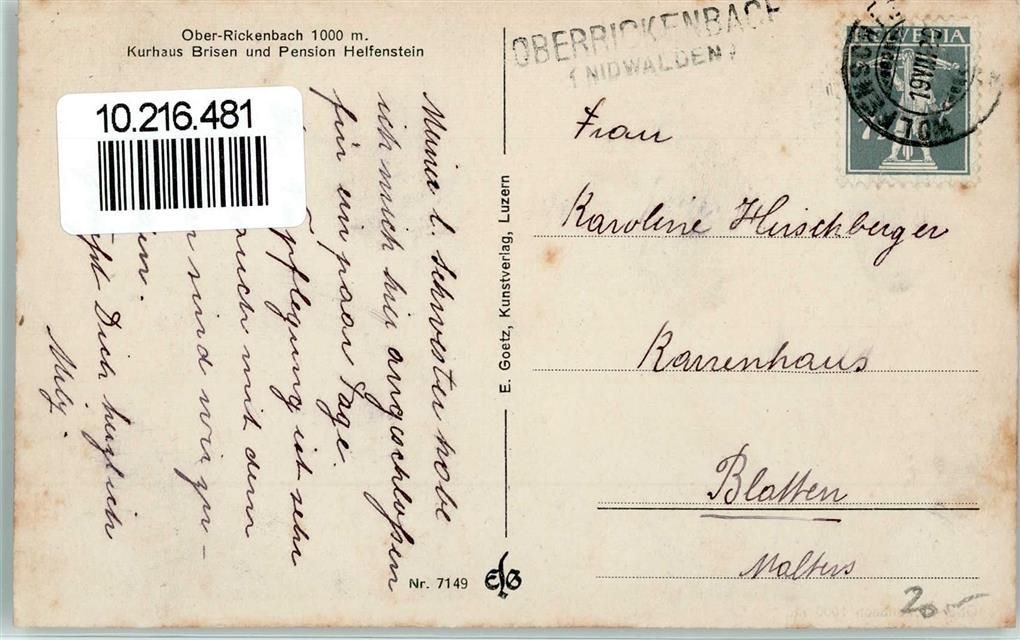 Ober-Rickenbach 1000 m.
Kurhaus Brisen und Pension Helfenstein
10.216.481
OBERRICKENBACH
(NIDWALDEN)
HELVETIA
WOLFENSCHIESSEN
19.VIII
Meine l. Schwester habe
ich mich hier angeschloßen
für ein paar Tage.
pflegung ist sehr
auch mit dem
sind wir zu-
Dich herzlich
Mely.
E. Goetz, Kunstverlag, Luzern
Nr. 7149
EG
Frau
Karoline Hirschberger
Karrenhaus
Blatten
Malters
20.-